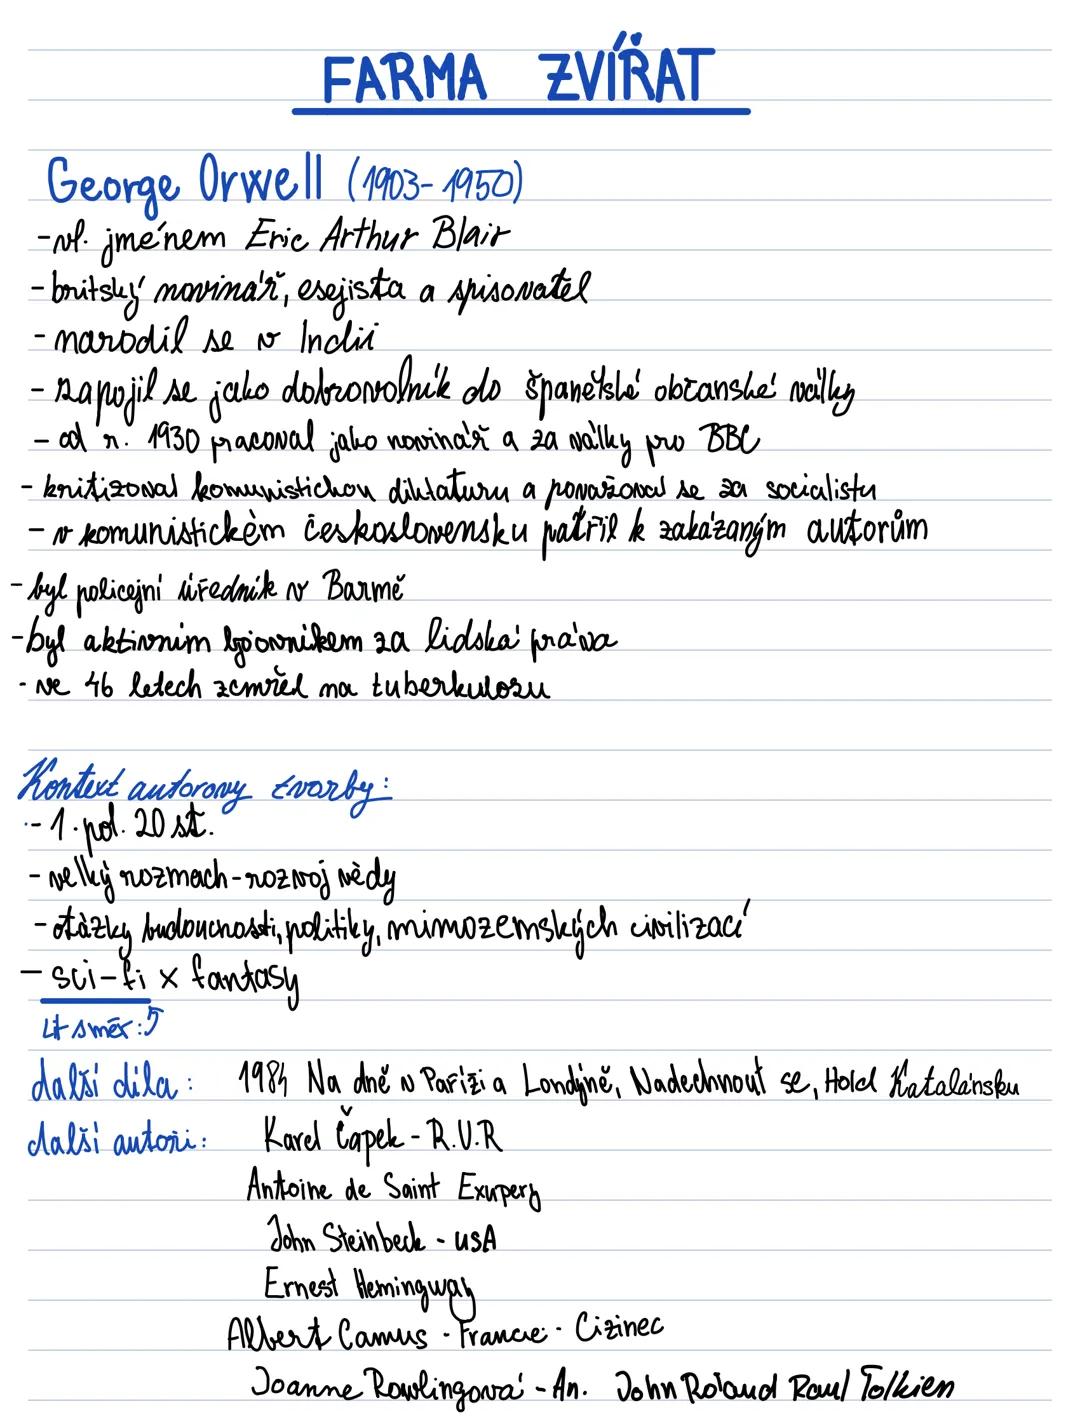 FARMA ZVÍŘAT
George Orwell (1903-1950)
-vl. jménem Eric Arthur Blair
- britský novinář, esejista a spisovatel
- narodil se v Indii
- zapojil se jako dobrovolník do španělské občanské války
- od r. 1930 pracoval jako novinář a za války pro BBC
- kritizoval komunistickou diktaturu a považoval se za socialistu
- v komunistickém československu patřil k zakázaným autorům
- byl policejní úředník v Barmě
-byl aktivním bojovníkem za lidská práva
- ve 46 letech zemřel na tuberkulozu
Kontext autorovy tvorby:
- 1. pol. 20 st.
- velký rozmach-rozvoj vědy
- otázky budoucnosti, politiky, mimozemských civilizací
- sci-fi x fantasy
Lit směr:5
další díla: 1984 Na dně v Paříži a Londýně, Nadechnout se, Hold Katalánsku
další autoři: Karel Čapek - R.U.R
Antoine de Saint Exupery
John Steinbeck - USA
Ernest Hemingway
Albert Camus - Francie - Cizinec
Joanne Rowlingová - An. John Roland Raul Tolkien